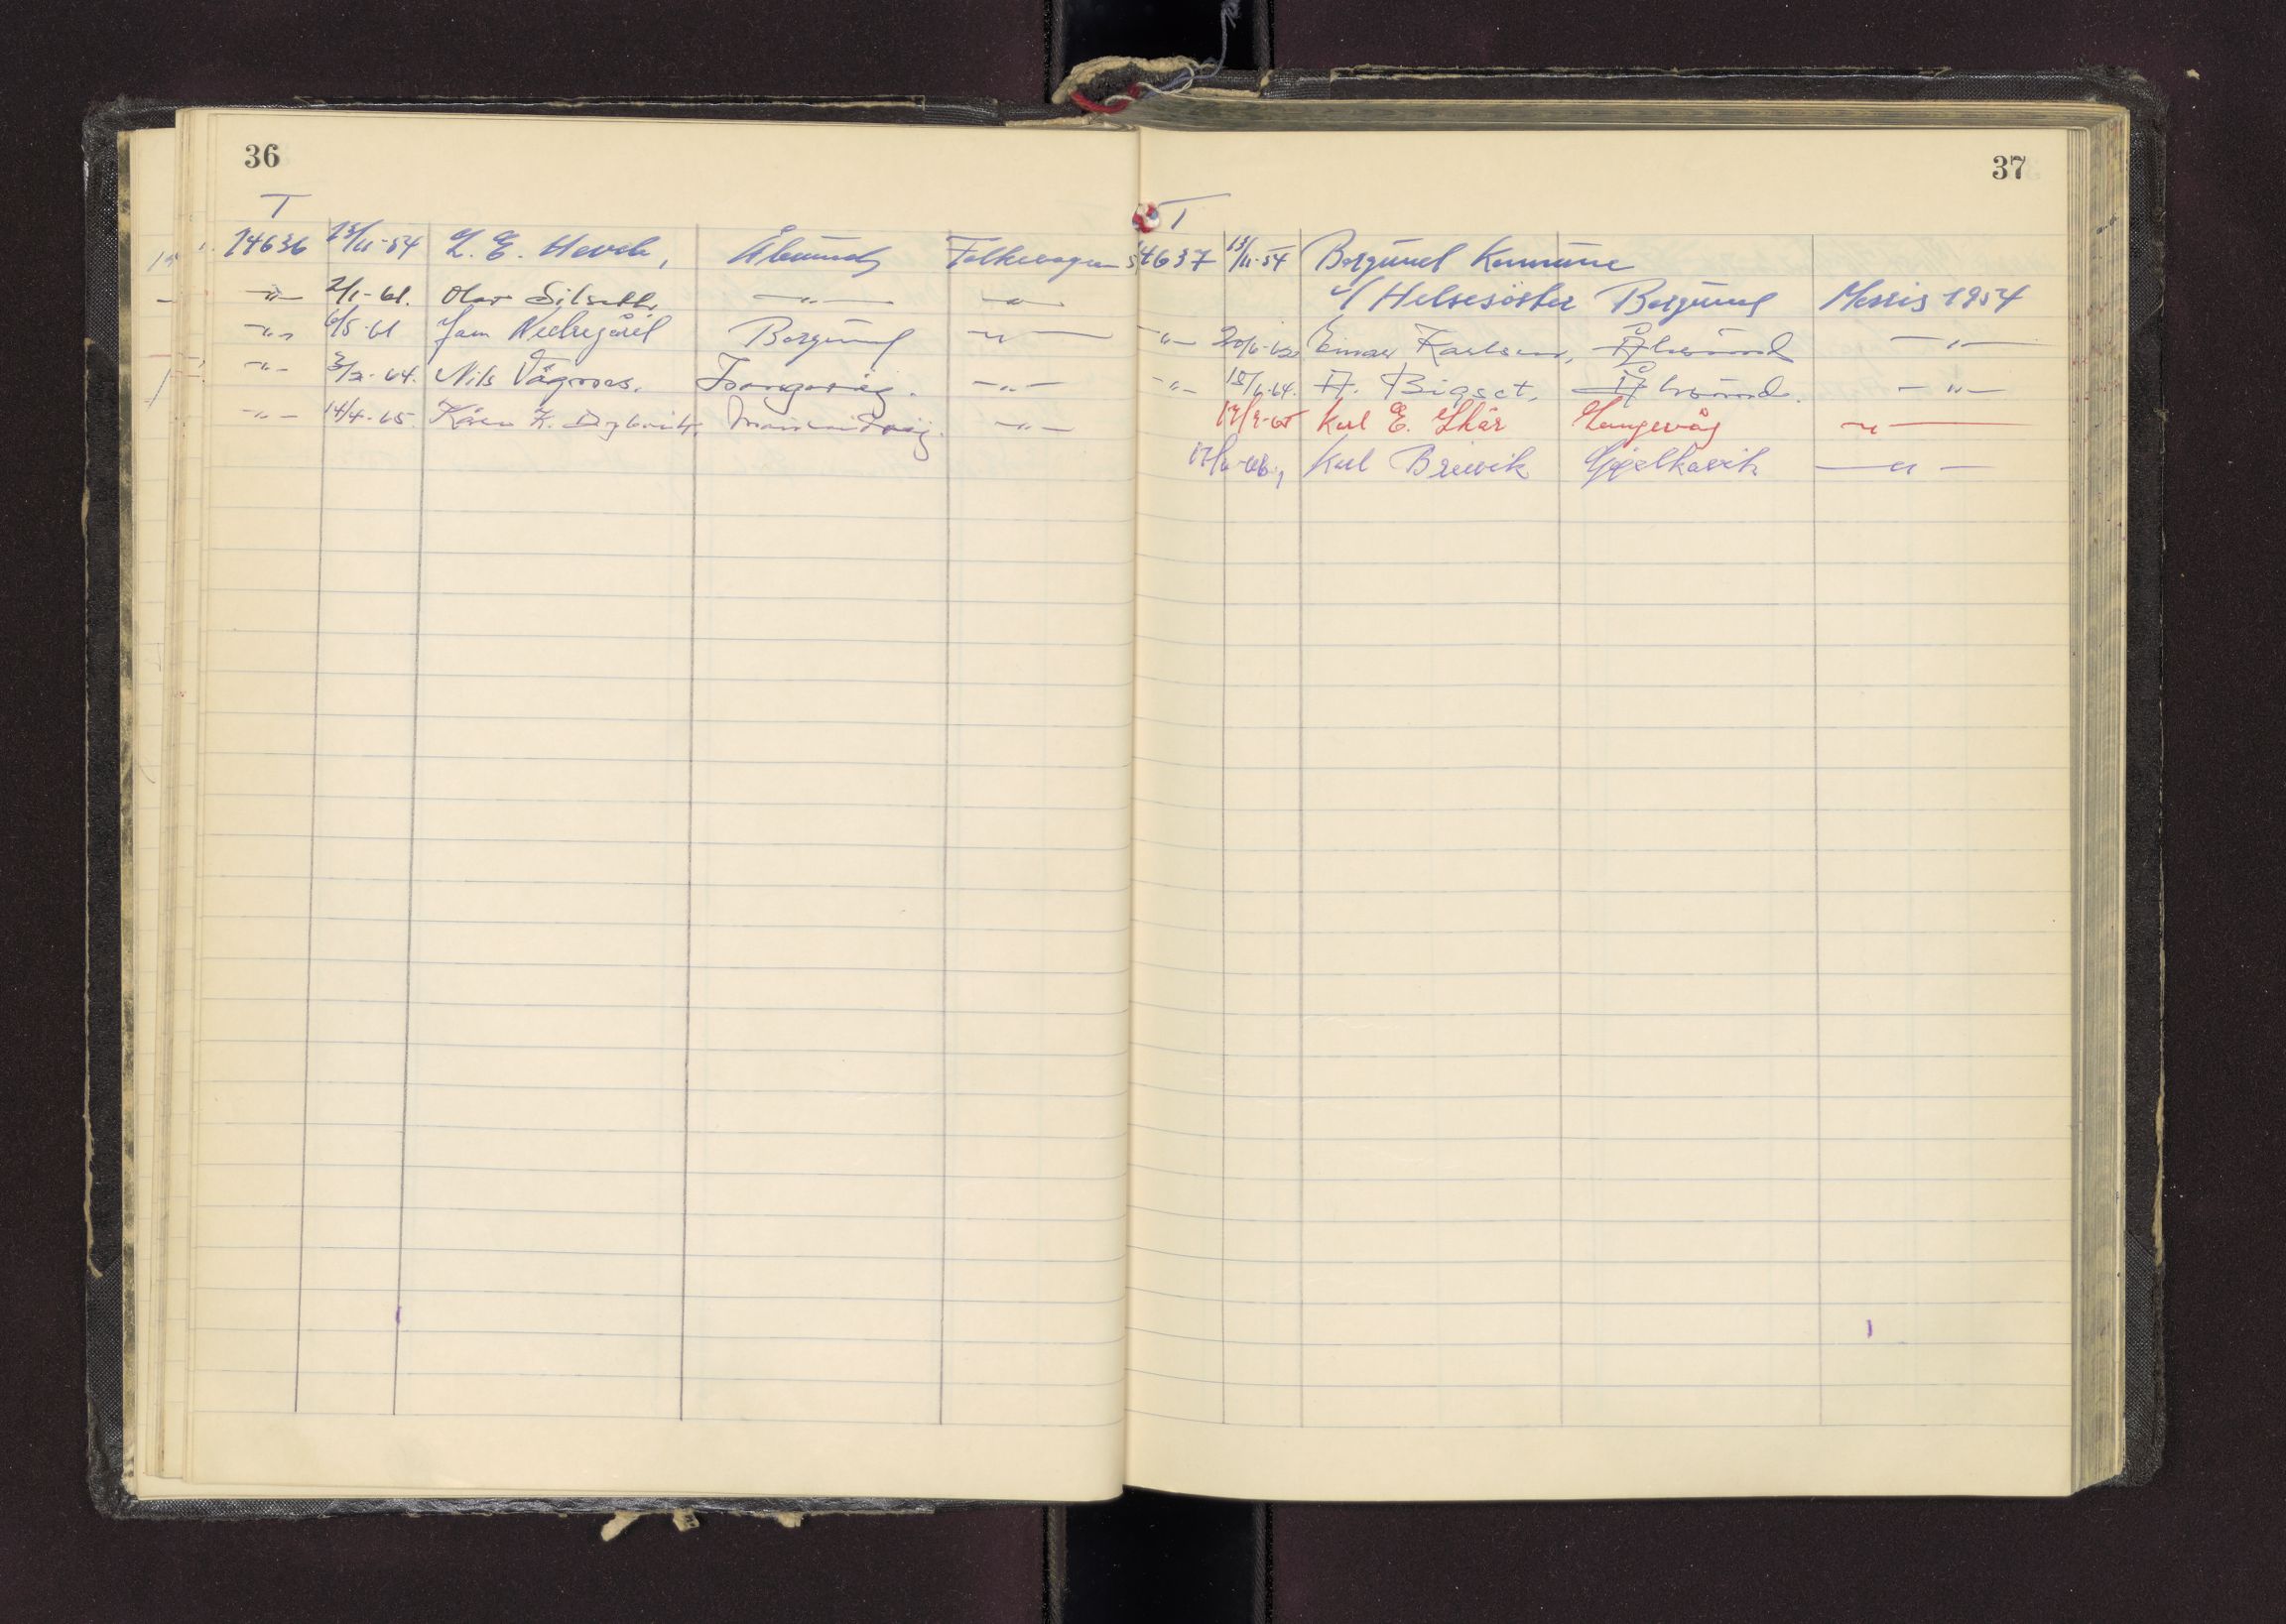 36
T
14636 13/11-54 L. E. Hevde, Ålesund Folkevogn
-"- 2/1-61. Olav Silseth, -"- -"-
-"- 6/5-61 Jan Nedregård Borgund -"-
-"- 3/2-64. Nils Vågnes. Tranvåg. -"-
-"- 14/4-65 Kåre K. Dybvik, -"-
37
T
14637 13/11-54 Borgund Kommune
v/ Helsesöster Borgund Morris 1954
-"- 20/6-62 Einar Karlsen, Ålesund -"-
-"- 18/6-64. A. Bigset, Ålesund. -"-
17/9-65 Karl E. Skår Langevåg -"-
17/6-68, Karl Breivik Gjelkavik -"-